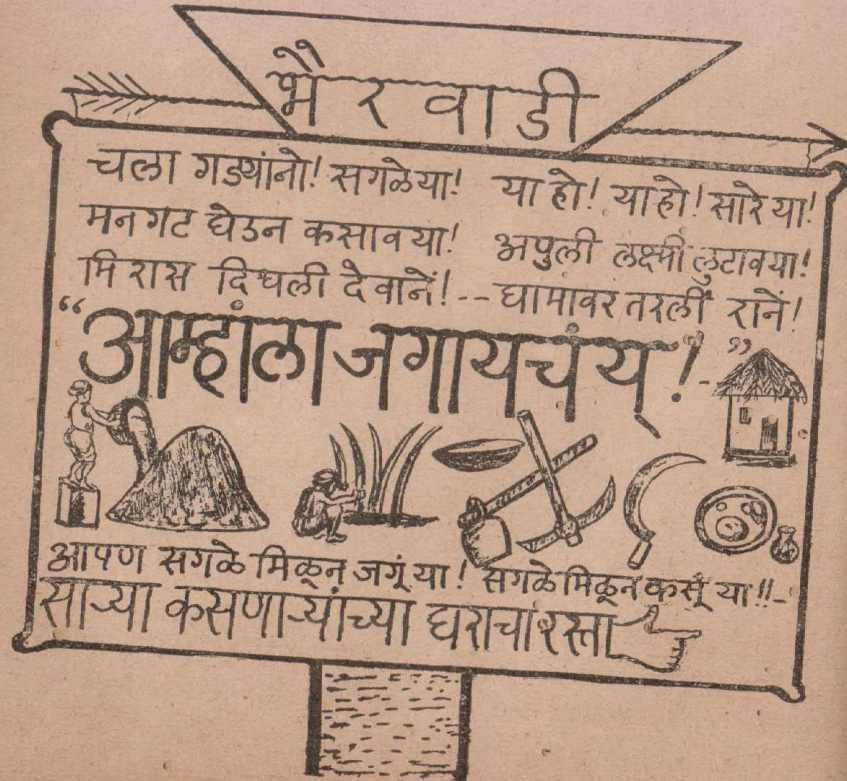 भैरवाडी
चला गड्यांनो! सगळेया! या हो! याहो! सारे या!
मनगट घेउन कसावया! अपुली लक्ष्मी लुटावया!
मिरास दिधली देवानें!-- घामावर तरलीं रानें!
"आम्हांला जगायचंय्!-"
आपण सगळे मिळून जगूं या! सगळे मिळून कसूं या!!-
साऱ्या कसणाऱ्यांच्या घराचा रस्ता